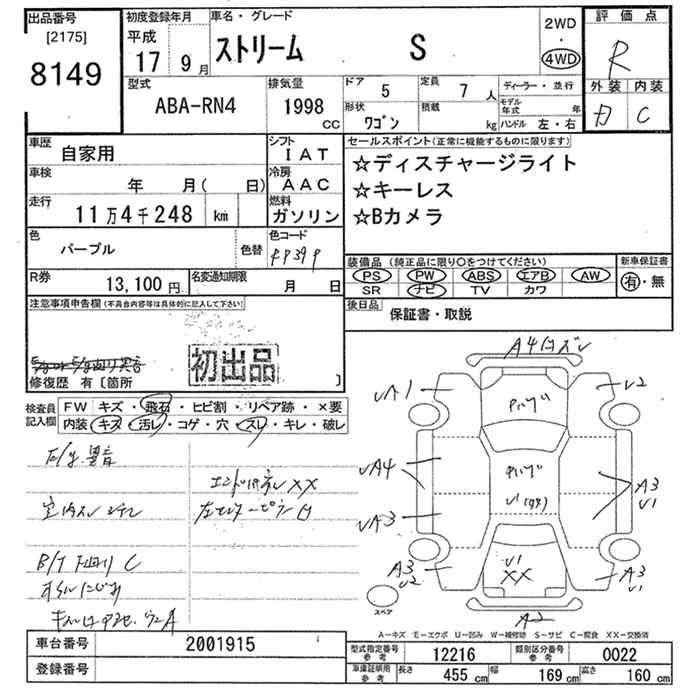 出品番号
[2175]
8149
初度登録年月
平成
17 9月
車名・グレード
ストリーム S
2WD
・
4WD
評価点
R
外装 内装
C
型式
ABA-RN4
排気量
1998
CC
ドア 5
定員 7 人
ディーラー・並行
形状
ワゴン
積載
kg
モデル年式 年
ハンドル 左・右
車歴
自家用
シフト
IAT
車検
年 月( 日)
冷房
AAC
走行
11万4千248 km
燃料
ガソリン
色
パープル
色替
色コード
R券
13,100 円
名変通知期限
月 日
セールスポイント(正常に機能するものに限ります)
☆ディスチャージライト
☆キーレス
☆Bカメラ
装備品 (純正品に限り○をつけてください)
PS PW ABS エアB AW
SR ナビ TV カワ
新車保証書
有・無
後日品
保証書・取説
注意事項申告欄(不具合内容等は具体的に記入して下さい)
初出品
修復歴 有〔箇所 〕
検査員
記入欄
FW キズ・飛石・ヒビ割・リペア跡・×要
内装 キズ・汚レ・コゲ・穴・スレ・キレ・破レ
E/g 異音
XX
B/T 下廻り C
A1
A4
A3
A3
U2
U2
A3
U1
A3
U1
U1
XX
A2
スペア
A-キズ E-エクボ U-凹み W-補修跡 S-サビ C-腐食 XX-交換済
車台番号
2001915
登録番号
型式指定番号
参考
12216
類別区分番号
参考
0022
車庫証明用
参考
長さ 455 cm
幅 169 cm
高さ 160 cm